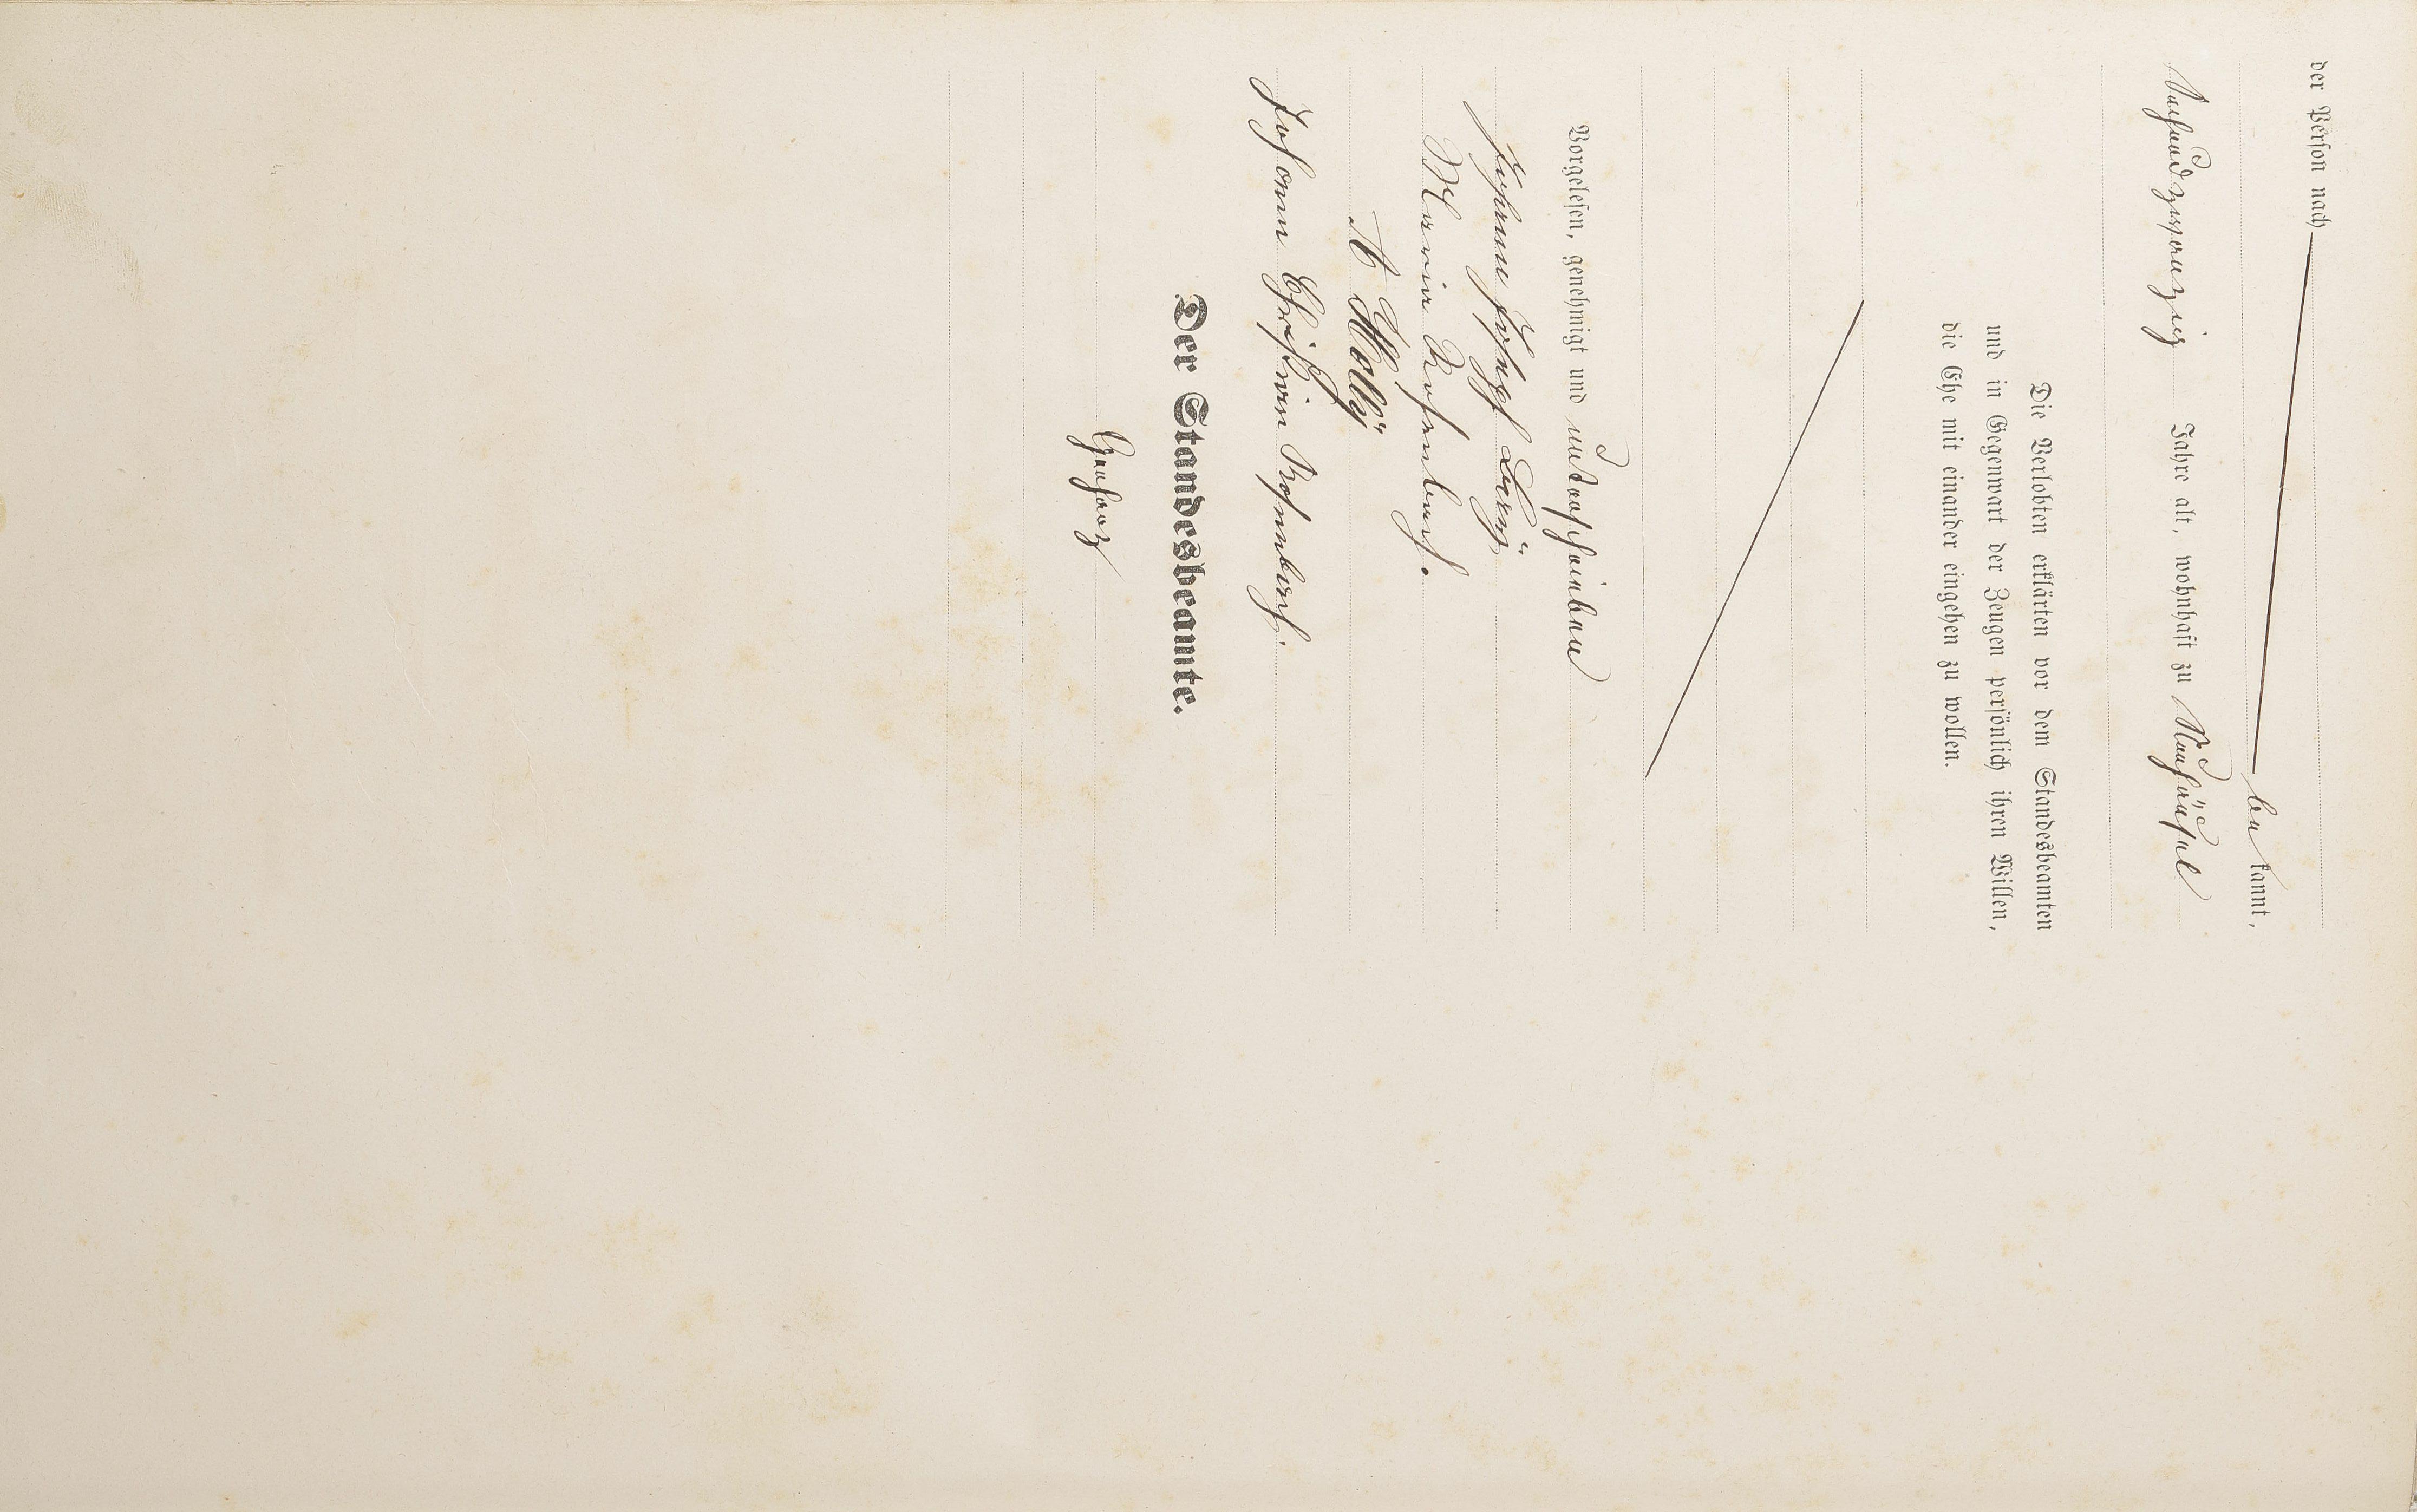 der Person nach
be kannt,
Sechsundzwanzig Jahre alt, wohnhaft zu Neuhäusel
Die Verlobten erklärten vor dem Standesbeamten
und in Gegenwart der Zeugen persönlich ihren Willen,
die Ehe mit einander eingehen zu wollen.
Vorgelesen, genehmigt und unterschrieben
Johann Josef
Maria
A
Johann
Der Standesbeamte.